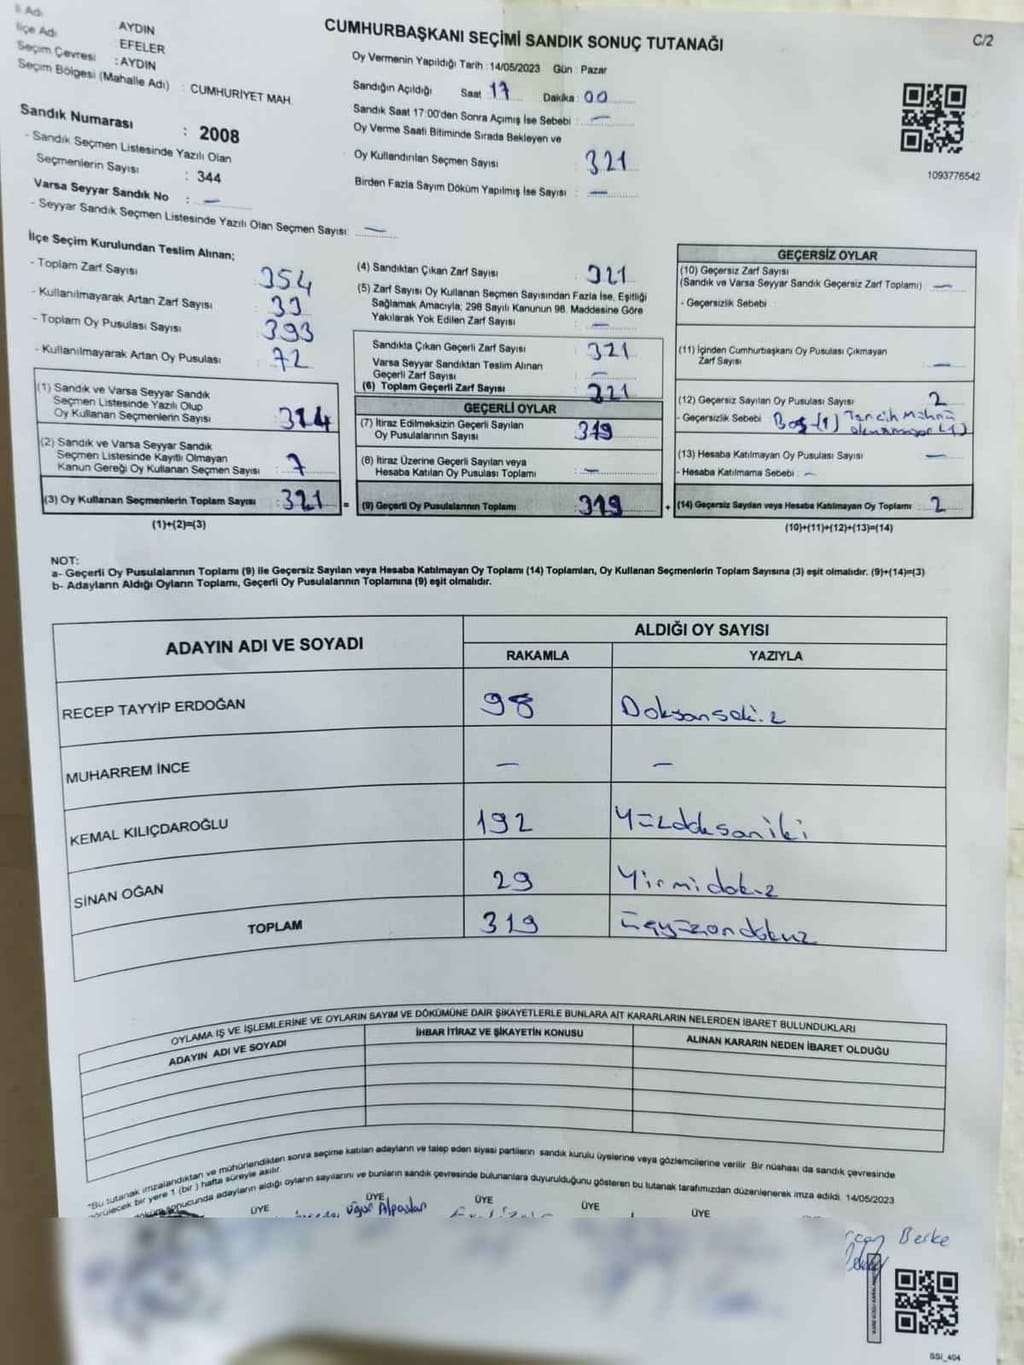 İl Adı
AYDIN
İlçe Adı
EFELER
Seçim Çevresi : AYDIN
Seçim Bölgesi (Mahalle Adı) : CUMHURİYET MAH.
Sandık Numarası : 2008
- Sandık Seçmen Listesinde Yazılı Olan
Seçmenlerin Sayısı : 344
Varsa Seyyar Sandık No : —
- Seyyar Sandık Seçmen Listesinde Yazılı Olan Seçmen Sayısı: —
CUMHURBAŞKANI SEÇİMİ SANDIK SONUÇ TUTANAĞI
C/2
Oy Vermenin Yapıldığı Tarih : 14/05/2023 Gün : Pazar
Sandığın Açıldığı Saat 17 Dakika : 00
Sandık Saat 17:00'den Sonra Açımış İse Sebebi : —
Oy Verme Saati Bitiminde Sırada Bekleyen ve
Oy Kullandırılan Seçmen Sayısı 321
Birden Fazla Sayım Döküm Yapılmış İse Sayısı : —
1093776542
İlçe Seçim Kurulundan Teslim Alınan;
- Toplam Zarf Sayısı 354
- Kullanılmayarak Artan Zarf Sayısı : 33
- Toplam Oy Pusulası Sayısı 393
- Kullanılmayarak Artan Oy Pusulası : 72
(1) Sandık ve Varsa Seyyar Sandık
Seçmen Listesinde Yazılı Olup
Oy Kullanan Seçmenlerin Sayısı : 314
(2) Sandık ve Varsa Seyyar Sandık
Seçmen Listesinde Kayıtlı Olmayan
Kanun Gereği Oy Kullanan Seçmen Sayısı : 7
(3) Oy Kullanan Seçmenlerin Toplam Sayısı : 321 =
(1)+(2)=(3)
(4) Sandıktan Çıkan Zarf Sayısı : 321
(5) Zarf Sayısı Oy Kullanan Seçmen Sayısından Fazla İse, Eşitliği
Sağlamak Amacıyla; 298 Sayılı Kanunun 98. Maddesine Göre
Yakılarak Yok Edilen Zarf Sayısı : —
Sandıkta Çıkan Geçerli Zarf Sayısı : 321
Varsa Seyyar Sandıktan Teslim Alınan
Geçerli Zarf Sayısı : —
(6) Toplam Geçerli Zarf Sayısı : 321
GEÇERLİ OYLAR
(7) İtiraz Edilmeksizin Geçerli Sayılan
Oy Pusulalarının Sayısı : 319
(8) İtiraz Üzerine Geçerli Sayılan veya
Hesaba Katılan Oy Pusulası Toplamı : —
(9) Geçerli Oy Pusulalarının Toplamı : 319 +
GEÇERSİZ OYLAR
(10) Geçersiz Zarf Sayısı
(Sandık ve Varsa Seyyar Sandık Geçersiz Zarf Toplamı) : —
- Geçersizlik Sebebi :
(11) İçinden Cumhurbaşkanı Oy Pusulası Çıkmayan
Zarf Sayısı : —
(12) Geçersiz Sayılan Oy Pusulası Sayısı : 2
- Geçersizlik Sebebi : Boş (1) Tercih Mührü
okunmuyor (1)
(13) Hesaba Katılmayan Oy Pusulası Sayısı : —
- Hesaba Katılmama Sebebi : —
(14) Geçersiz Sayılan veya Hesaba Katılmayan Oy Toplamı : 2
(10)+(11)+(12)+(13)=(14)
NOT:
a- Geçerli Oy Pusulalarının Toplamı (9) ile Geçersiz Sayılan veya Hesaba Katılmayan Oy Toplamı (14) Toplamları, Oy Kullanan Seçmenlerin Toplam Sayısına (3) eşit olmalıdır. (9)+(14)=(3)
b- Adayların Aldığı Oyların Toplamı, Geçerli Oy Pusulalarının Toplamına (9) eşit olmalıdır.
ADAYIN ADI VE SOYADI
ALDIĞI OY SAYISI
RAKAMLA YAZIYLA
RECEP TAYYİP ERDOĞAN 98 Doksansekiz
MUHARREM İNCE — —
KEMAL KILIÇDAROĞLU 192 Yüzdoksaniki
SİNAN OĞAN 29 Yirmidokuz
TOPLAM 319 Üçyüzondokuz
OYLAMA İŞ VE İŞLEMLERİNE VE OYLARIN SAYIM VE DÖKÜMÜNE DAİR ŞİKAYETLERLE BUNLARA AİT KARARLARIN NELERDEN İBARET BULUNDUKLARI
ADAYIN ADI VE SOYADI İHBAR İTİRAZ VE ŞİKAYETİN KONUSU ALINAN KARARIN NEDEN İBARET OLDUĞU
"Bu tutanak imzalandıktan ve mühürlendikten sonra seçime katılan adayların ve talep eden siyasi partilerin sandık kurulu üyelerine veya gözlemcilerine verilir. Bir nüshası da sandık çevresinde
görülecek bir yere 1 (bir) hafta süreyle asılır.
sonucunda adayların aldığı oyların sayılarını ve bunların sandık çevresinde bulunanlara duyurulduğunu gösteren bu tutanak tarafımızdan düzenlenerek imza edildi. 14/05/2023
ÜYE ÜYE ÜYE ÜYE ÜYE
Uğur Alpaslan
Berke
SSİ_404